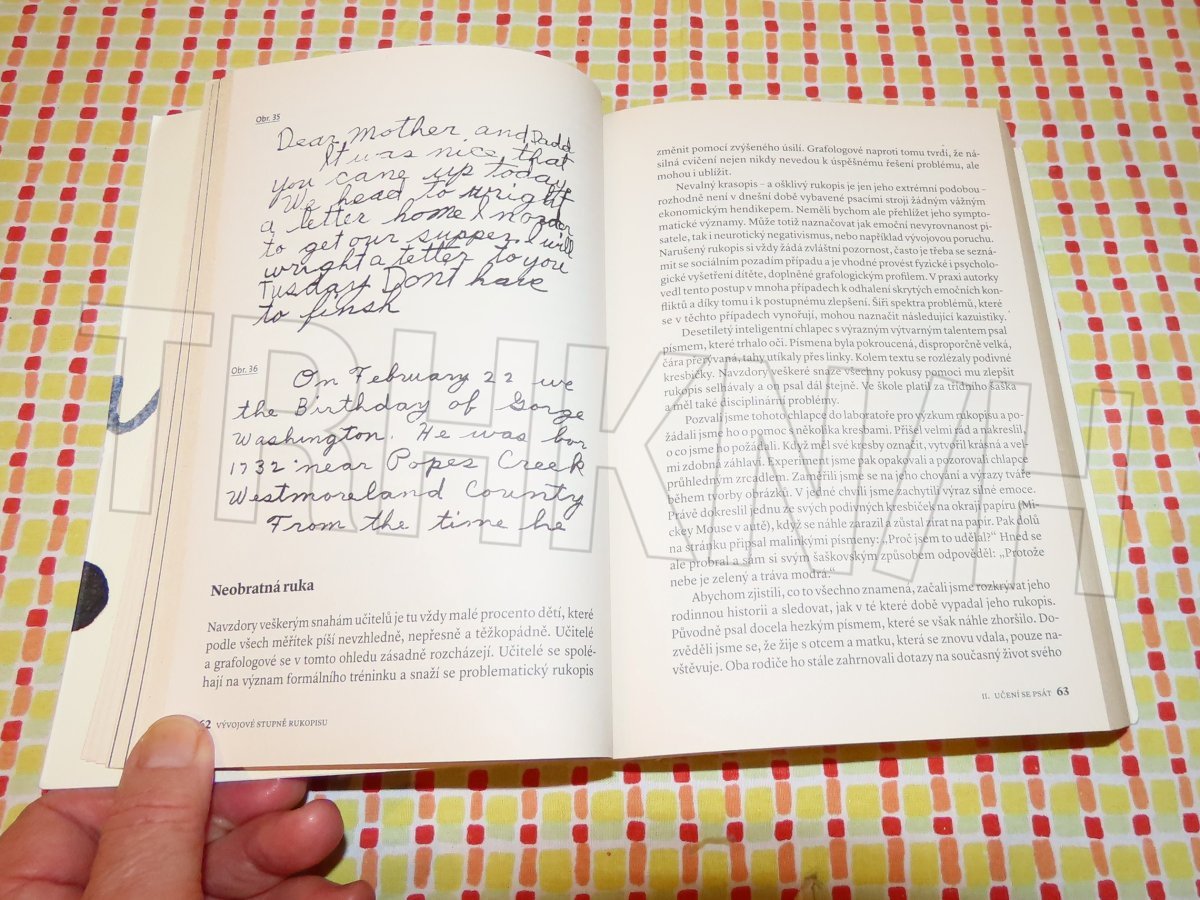 Obr. 35
Dear Mother and Dadd
It was nice that
you cane up today
We head to wright
a letter home I norder
to get our supper. I will
wright a tetter to you
Tusday Don't have
to finsh
Obr. 36
On February 22 we
the Birthday of Gorge
Washington. He was bor
1732 near Popes Creek
Westmoreland County
From the time he
Neobratná ruka
Navzdory veškerým snahám učitelů je tu vždy malé procento dětí, které
podle všech měřítek píší nevzhledně, nepřesně a těžkopádně. Učitelé
a grafologové se v tomto ohledu zásadně rozcházejí. Učitelé se spolé-
hají na význam formálního tréninku a snaží se problematický rukopis
62 VÝVOJOVÉ STUPNĚ RUKOPISU
změnit pomocí zvýšeného úsilí. Grafologové naproti tomu tvrdí, že ná-
silná cvičení nejen nikdy nevedou k úspěšnému řešení problému, ale
mohou i ublížit.
Nevalný krasopis – a ošklivý rukopis je jen jeho extrémní podobou –
rozhodně není v dnešní době vybavené psacími stroji žádným vážným
ekonomickým hendikepem. Neměli bychom ale přehlížet jeho sympto-
matické významy. Může totiž naznačovat jak emoční nevyrovnanost pi-
satele, tak i neurotický negativismus, nebo například vývojovou poruchu.
Narušený rukopis si vždy žádá zvláštní pozornost, často je třeba se sezná-
mit se sociálním pozadím případu a je vhodné provést fyzické i psycholo-
gické vyšetření dítěte, doplněné grafologickým profilem. V praxi autorky
vedl tento postup v mnoha případech k odhalení skrytých emočních kon-
fliktů a díky tomu i k postupnému zlepšení. Šíři spektra problémů, které
se v těchto případech vynořují, mohou naznačit následující kazuistiky.
Desetiletý inteligentní chlapec s výrazným výtvarným talentem psal
písmem, které trhalo oči. Písmena byla pokroucená, disproporčně velká,
čára přerývaná, tahy utíkaly přes linky. Kolem textu se rozlézaly podivné
kresbičky. Navzdory veškeré snaze všechny pokusy pomoci mu zlepšit
rukopis selhávaly a on psal dál stejně. Ve škole platil za třídního šaška
a měl také disciplinární problémy.
Pozvali jsme tohoto chlapce do laboratoře pro výzkum rukopisu a po-
žádali jsme ho o pomoc s několika kresbami. Přišel velmi rád a nakreslil,
o co jsme ho požádali. Když měl své kresby označit, vytvořil krásná a vel-
mi zdobná záhlaví. Experiment jsme pak opakovali a pozorovali chlapce
průhledným zrcadlem. Zaměřili jsme se na jeho chování a výrazy tváře
během tvorby obrázků. V jedné chvíli jsme zachytili výraz silné emoce.
Právě dokreslil jednu ze svých podivných kresbiček na okraji papíru (Mi-
ckey Mouse v autě), když se náhle zarazil a zůstal zírat na papír. Pak dolů
na stránku připsal malinkými písmeny: „Proč jsem to udělal?“ Hned se
ale probral a sám si svým šaškovským způsobem odpověděl: „Protože
nebe je zelený a tráva modrá.“
Abychom zjistili, co to všechno znamená, začali jsme rozkrývat jeho
rodinnou historii a sledovat, jak v té které době vypadal jeho rukopis.
Původně psal docela hezkým písmem, které se však náhle zhoršilo. Do-
zvěděli jsme se, že žije s otcem a matku, která se znovu vdala, pouze na-
vštěvuje. Oba rodiče ho stále zahrnovali dotazy na současný život svého
II. UČENÍ SE PSÁT 63
TRHKNIH